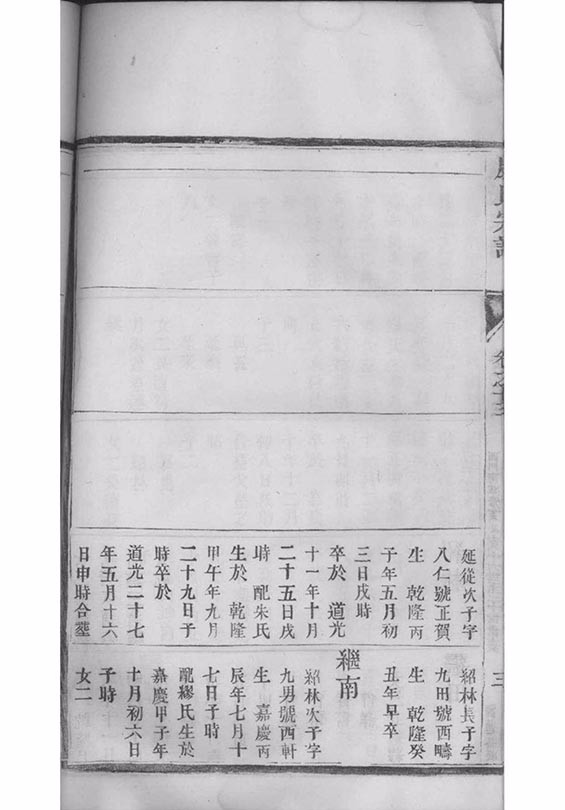 氏宗譜
卷之十三
三
延從次子字
八仁號正賀
生 乾隆丙
子年五月初
三日戌時
卒於 道光
十一年十月
二十五日戌
時 配朱氏
生於 乾隆
甲午年九月
二十九日子
時卒於
道光二十七
年五月十六
日申時合塟
紹林長子字
九田號西疇
生 乾隆癸
丑年早卒
繼南
紹林次子字
九男號西軒
生 嘉慶丙
辰年七月十
七日子時
配繆氏生於
嘉慶甲子年
十月初六日
子時
女二